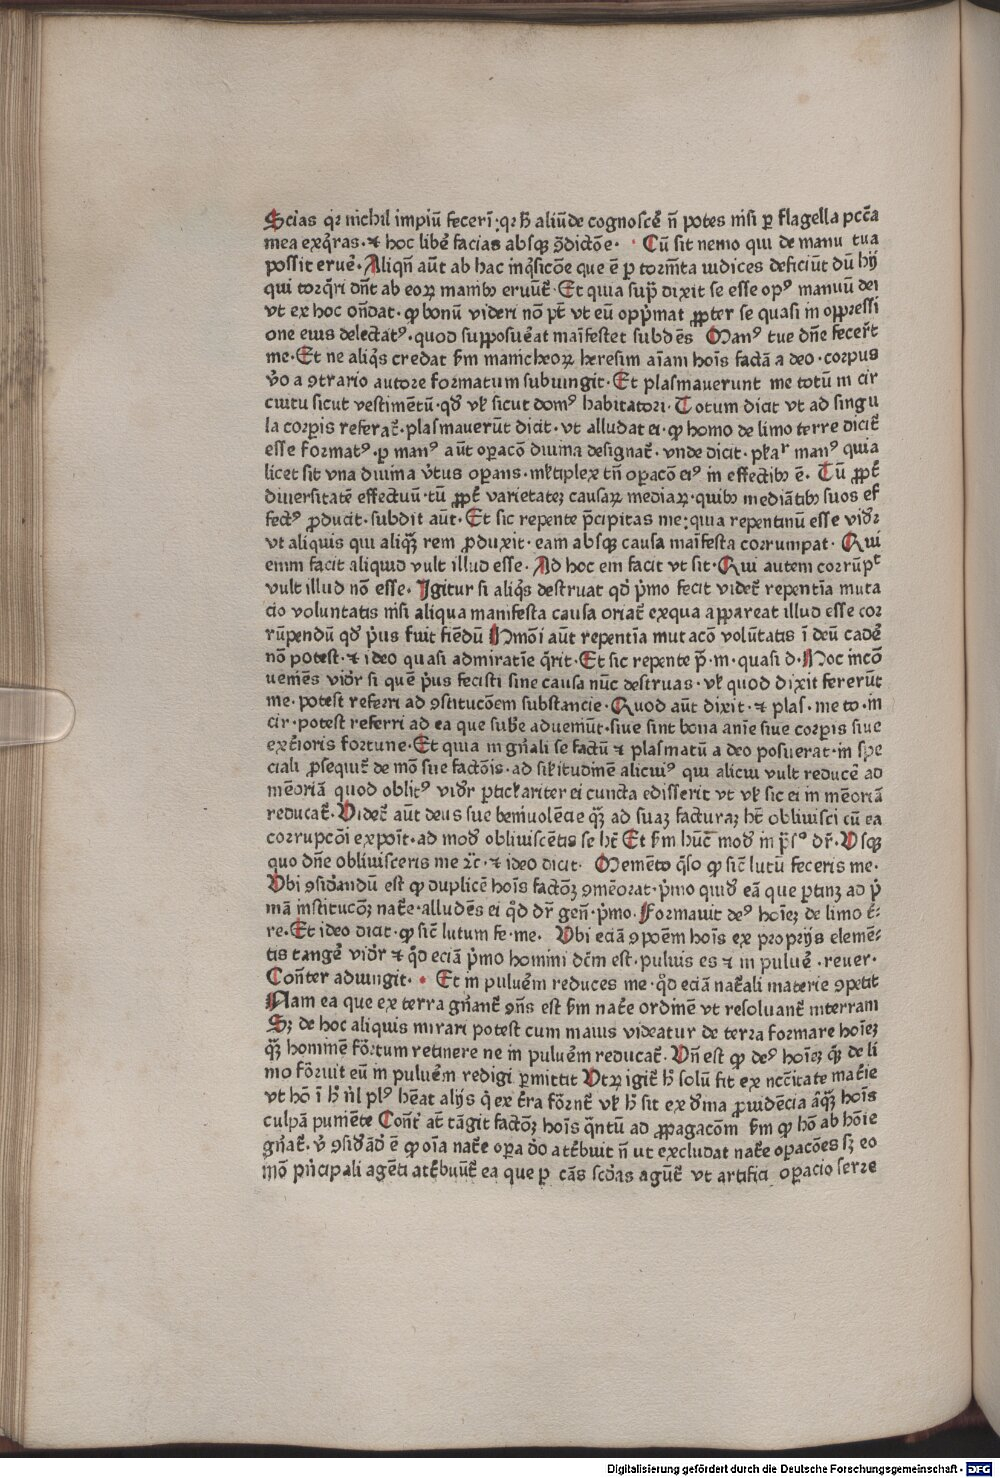 Scias qꝛ nichil impiū feceri᷒ : qꝛ h̄ aliūde cognoscē n̄ potes nisi ꝑ flagella pcc̄a
mea exq̄ras · ⁊ hoc libē facias absqꝫ ꝯ̄dictōe · Cū sit nemo qui de manu tua
possit eruē · Aliqn̄ aūt ab hac inq̄sicōe que ē ꝑ torm̄ta iudices deficiūt dū hij
qui torq̄ri dn̄t ab eoꝝ manibꝰ eruūt᷒ · Et quia sup̄ dixit se esse opꝰ manuū dei
vt ex hoc on̄dat · ꝙ bonū videri nō pt̄ vt eū opp̄mat ꝓpter se quasi in oppressi
one eius delectatꝰ · quod supposuēat maīfestet subdēs Manꝰ tue dn̄e fecer̄t
me · Et ne aliq̄s credat ẜm manicheoꝝ heresim aīam hoīs factā a deo · corpus
v̄o a ꝯtrario autore formatum subiungit · Et plasmauerunt me totū in cir
cuitu sicut vestimētū · qd̄ vł sicut domꝰ habitatori · Totum dicit vt ad singu
la corꝑis referat᷒ · plasmauerūt dicit · vt alludat ei · ꝙ homo de limo terre dicit᷒
esse formatꝰ · ꝑ manꝰ aūt oꝑacō diuina designat᷒ · vnde dicit · płaꝛ manꝰ quia
licet sit vna diuina v̄tus oꝑans · młtiplex tn̄ oꝑacō eiꝰ in effectibꝰ ē · Tū ꝓpt᷒
diuersitatē effectuū · tū ꝓpt᷒ varietateꝫ causaꝝ mediaꝝ · quibꝰ mediātibꝰ suos ef
fectꝰ ꝓducit · subdit aūt · Et sic repente p̄cipitas me : quia repentinū esse vid̄r
vt aliquis qui aliqꝫ̄ rem ꝓduxit · eam absqꝫ causa maīfesta corrumpat · Qui
enim facit aliquid vult illud esse · Ad hoc em̄ facit vt sit · Qui autem corrūpt
vult illud nō esse · Igitur si aliq̄s destruat qd̄ p̄mo fecit videt᷒ repentīa muta
cio voluntatis nisi aliqua manifesta causa oriat᷒ exqua appareat illud esse cor
rūpendū qd̄ p̄us fuit fiēdū Hmōi aūt repentīa mutacō volūtatis ī deū cadē
nō potest · ⁊ ideo quasi admiratīe q̄rit · Et sic repente p̄ · m · quasi d · Hoc incō
uemēs vid̄r si quē p̄us fecisti sine causa nūc destruas · vł quod dixit fererūt
me · potest referri ad ꝯstitucōem substancie · Quod aūt dixit · ⁊ plas · me to · in
cir · potest referri ad ea que sub̄e adueniūt · siue sint bona anīe siue corꝑis siue
ext̄ioris fortune · Et quia in gn̄ali se factū ⁊ plasmatū a deo posuerat · in spe
ciali ꝓsequit᷒ de mō sue factōis · ad siłitudinē alicuiꝰ qui alicui vult reducē ad
mēoriā quod oblitꝰ vid̄r ꝑticłariter ei cuncta edisserit vt vł sic ei in mēoriā
reducat᷒ · Videt᷒ aūt deus sue beniuolēcie qꝫ̄ ad suaꝫ facturaꝫ hꝫ̄ obliuisci cū ea
corrupcōi expoīt · ad mod̄ obliuiscētis se hꝫ̄ Et ẜm hūc mod̄ in p̄s° dr̄ · Vsqꝫ
quo dn̄e obliuisceris me ⁊c̄ · ⁊ ideo dicit · Memēto q̄so ꝙ sic̄ lutū feceris me ·
Vbi ꝯsid̄andū est ꝙ duplicē hoīs factōꝫ ꝯmēorat · p̄mo quid̄ eā que ꝑtinꝫ ad p̄
mā institucōꝫ nat᷒e · alludēs ei qd̄ dr̄ gen̄ · p̄mo · Formauit deꝰ hoīeꝫ de limo t᷒:
re · Et ideo dicit · ꝙ sic̄ lutum fe · me · Vbi eciā ꝯpoēm hoīs ex proprijs elemē:
tis tangē vid̄r ⁊ qd̄ eciā p̄mo homini dc̄m est · puluis es ⁊ in puluē · reuer ·
Con̄ter adiungit · Et in puluēm reduces me · qd̄ eciā nat᷒ali materie ꝯpetit
Nam ea que ex terra gn̄ant᷒ ꝯn̄s est ẜm nat᷒e ordinē vt resoluant᷒ interram
Sꝫ de hoc aliquis mirari potest cum maius videatur de terra formare hoīeꝫ
qꝫ̄ hominē fōrtum retinere ne in puluēm reducat᷒ · Vn̄ est ꝙ deꝰ hoīeꝫ qꝫ̄ de li
mo fōruit eū in puluēm redigi ꝑmittit Vtꝝ igit᷒ h̄ solū fit ex ncc̄itate mat᷒ie
vt hō ī h̄ n̄l plꝰ hēat alijs q̄ ex t᷒ra fōrnt᷒ vł h̄ sit ex d̄ma ꝓuidēcia āqꝫ̄ hoīs
culpā puniēte Con̄t᷒ at̄ tāgit factōꝫ hoīs qn̄tū ad ꝓpagacōm ẜm ꝙ hō ab hōie
gn̄at᷒ · v̄ ꝯsid̄ād̄ ē ꝙ oīa nat᷒e oꝑa d̄o at᷒buit n̄ ut excludat nat᷒e oꝑacōes sꝫ eo
mō pn̄cipali agēti at᷒buūt᷒ ea que ꝑ cās scd̄as agūt᷒ vt artifici oꝑacio serre
Digitalisierung gefördert durch die Deutsche Forschungsgemeinschaft - DFG